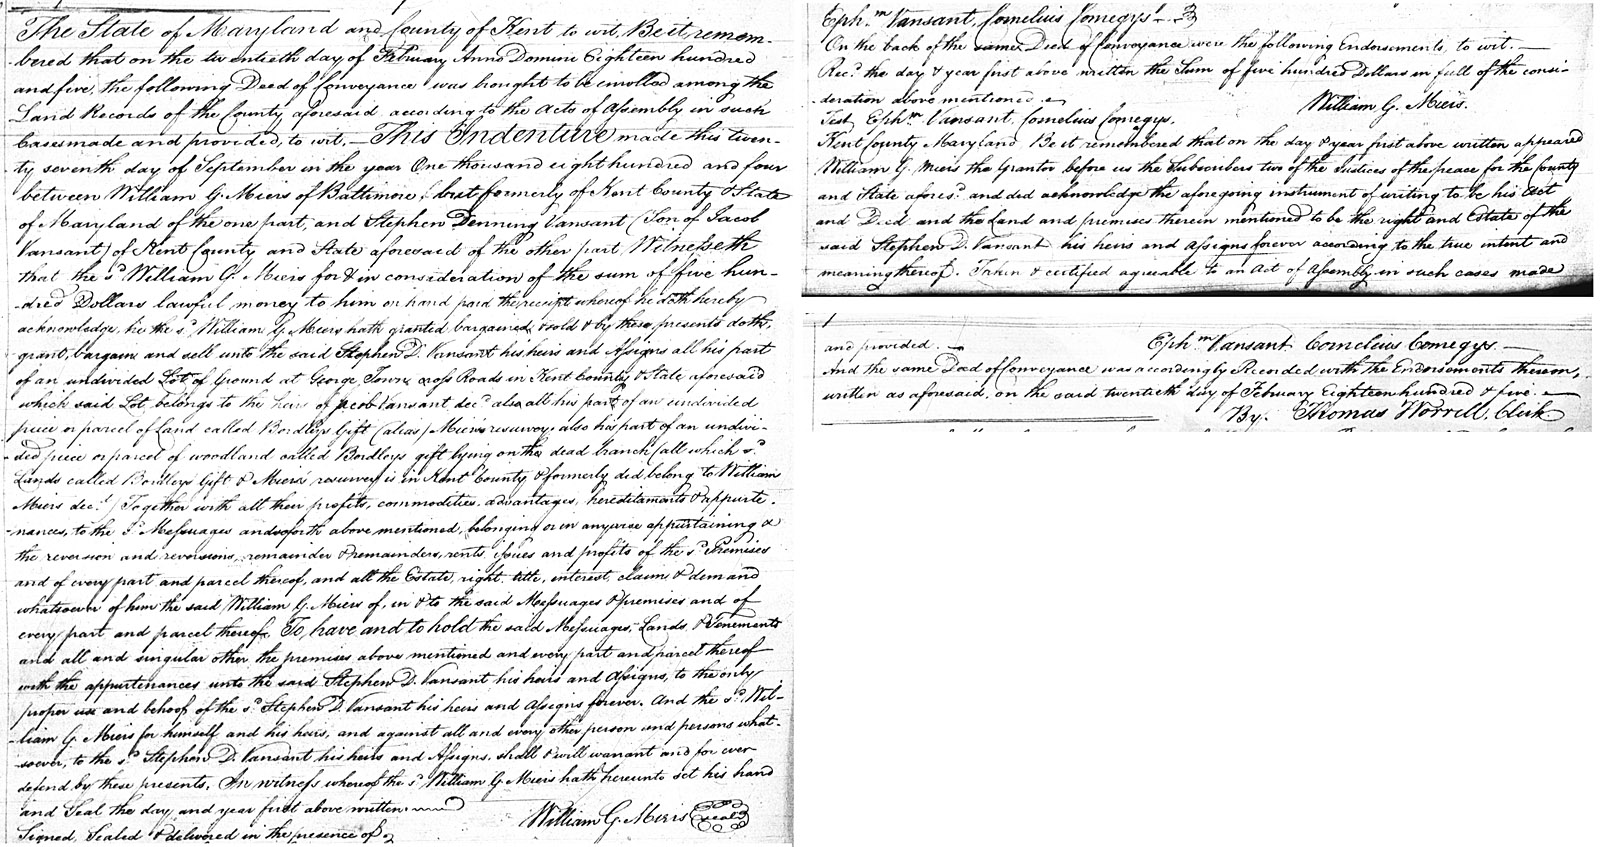 The State of Maryland and County of Kent to wit, Be it remem-
-bered that on the twentieth day of February Anno Domini Eighteen hundred
and five, the following Deed of Conveyance was brought to be enrolled among the
Land Records of the County aforesaid according to the Acts of Assembly in such
Cases made and provided, to wit, — This Indenture made this twen-
ty seventh day of September in the year One thousand eight hundred and four
between William G. Miers of Baltimore, but formerly of Kent County & State
of Maryland of the one part, and Stephen Denning Vansant (Son of Jacob
Vansant) of Kent County and State aforesaid of the other part, Witnesseth
that the sd. William G. Miers for & in consideration of the sum of five hun-
-dred Dollars lawful money to him on hand paid the receipt whereof he doth hereby
acknowledge, he the sd. William G. Miers hath granted bargained & sold & by these presents doth,
grant, bargain and sell unto the said Stephen D. Vansant his heirs and Assigns all his part
of an undivided Lot of Ground at George Town Cross Roads in Kent County & State aforesaid
which said Lot belongs to the heirs of Jacob Vansant decd. also all his part of an undivided
piece or parcel of Land called Bordleys Gift (alias) Miers resurvey, also his part of an undivi-
-ded piece or parcel of woodland called Bordleys gift lying on the dead branch (all which sd.
Lands called Bordleys Gift & Miers resurvey is in Kent County & formerly did belong to William
Miers decd.) Together with all their profits, commodities, advantages, hereditaments & appurte-
-nances, to the sd. Messuages and so forth above mentioned, belonging or in anywise appurtaining &
the reversion and reversions, remainder & remainders, rents, issues and profits of the sd. Premises
and of every part and parcel thereof, and all the Estate, right, title, interest, claim & demand
whatsoever of him the said William G. Miers of, in & to the said Messuages & premises and of
every part and parcel thereof. To, have and to hold the said Messuages, Lands, & Tenements
and all and singular other the premises above mentioned and every part and parcel thereof
with the appurtenances unto the said Stephen D. Vansant his heirs and Assigns, to the only
proper use and behoof of the sd. Stephen D. Vansant his heirs and Assigns forever. And the sd. Wil-
-liam G. Miers for himself and his heirs, and against all and every other person and persons what-
soever, to the sd. Stephen D. Vansant his heirs and Assigns, shall & will warrant and for ever
defend by these presents. In witness whereof the sd. William G. Miers hath hereunto set his hand
and Seal the day and year first above written.
William G. Miers Seal
Signed, Sealed & delivered in the presence of
Ephm. Vansant, Cornelius Comegys.
On the back of the same Deed of Conveyance were the following Endorsements, to wit. —
Recd. the day & year first above written the Sum of five hundred Dollars in full of the consi-
deration above mentioned.
William G. Miers.
Test Ephm. Vansant, Cornelius Comegys.
Kent County Maryland Be it remembered that on the day & year first above written appeared
William G. Miers the Grantor before us the Subscribers two of the Justices of the peace for the County
and State aforesd. and did acknowledge the aforegoing instrument of writing to be his Act
and Deed and the Land and premises therein mentioned to be the right and Estate of the
said Stephen D. Vansant his heirs and Assigns forever according to the true intent and
meaning thereof. Taken & certified agreable to an act of Assembly in such cases made
and provided. —
Ephm. Vansant Cornelius Comegys. —
And the same Deed of Conveyance was accordingly Recorded with the Endorsements thereon,
written as aforesaid, on the said twentieth day of February Eighteen hundred & five. —
By. Thomas Worrell, Clerk